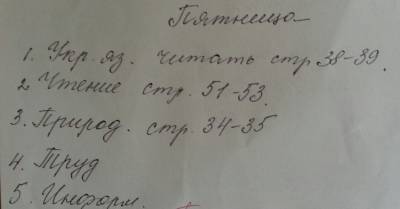 Пятница
1. Укр. яз. читать стр 38-39.
2. Чтение стр. 51-53.
3. Природ. стр. 34-35
4. Труд
5. Информ.